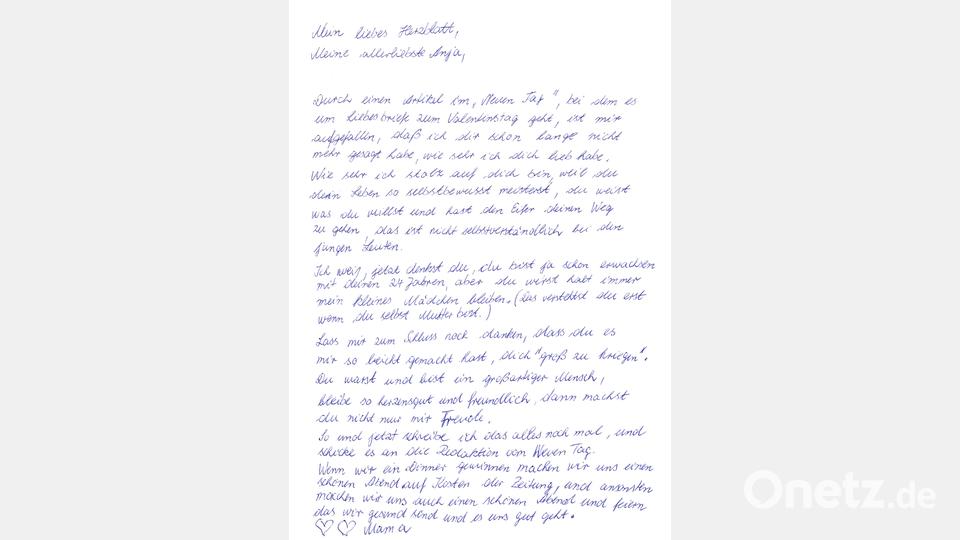 Mein liebes Herzblatt,
Meine allerliebste Anja,
Durch einen Artikel im „Neuen Tag", bei dem es
um Liebesbriefe zum Valentinstag geht, ist mir
aufgefallen, daß ich dir schon lange nicht
mehr gesagt habe, wie sehr ich dich lieb habe.
Wie sehr ich stolz auf dich bin, weil du
dein Leben so selbstbewusst meisterst, du weist
was du willst und hast den Eifer deinen Weg
zu gehen, das ist nicht selbstverständlich bei den
jungen Leuten.
Ich weiß, jetzt denkst du, du bist ja schon erwachsen
mit deinen 24 Jahren, aber du wirst halt immer
mein kleines Mädchen bleiben. (Das verstehst du erst
wenn du selbst Mutter bist.)
Lass mir zum Schluss noch danken, dass du es
mir so leicht gemacht hast, dich "groß zu kriegen".
Du warst und bist ein großartiger Mensch,
bleibe so herzensgut und freundlich, dann machst
du nicht nur mir Freude.
So und jetzt schreibe ich das alles noch mal, und
schicke es an die Redaktion vom Neuen Tag.
Wenn wir ein Dinner gewinnen machen wir uns einen
schönen Abend auf Kosten der Zeitung, und ansonsten
machen wir uns auch einen schönen Abend und feiern
das wir gesund send und es uns gut geht.
♡ ♡ Mama
Onetz.de